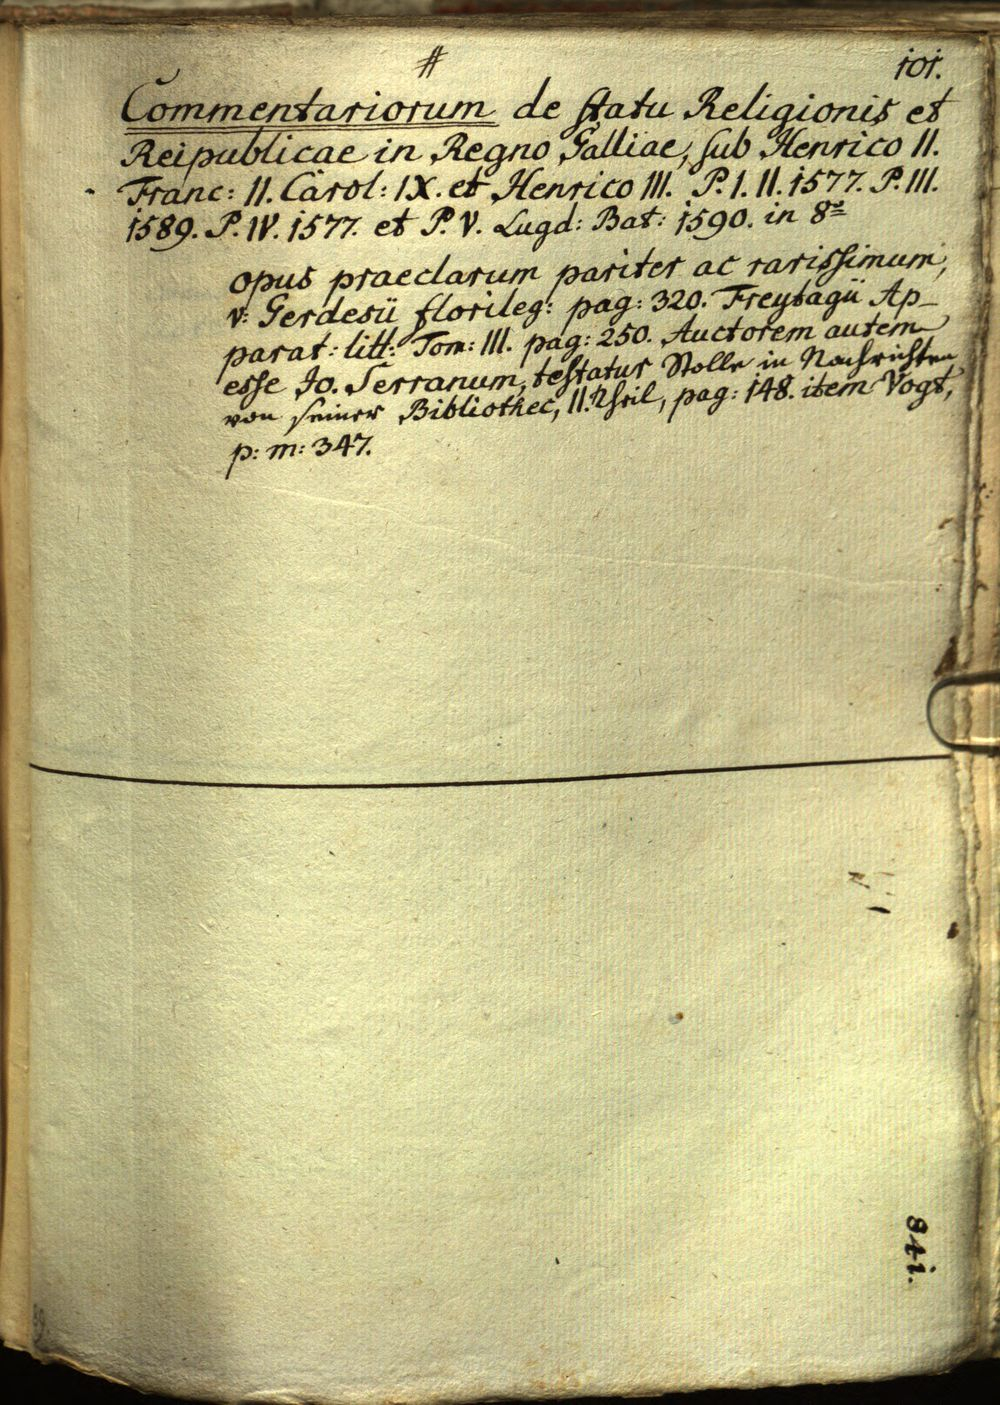 #
101.
Commentariorum de statu Religionis et
Reipublicae in Regno Galliae, sub Henrico II.
Franc: II. Carol: IX. et Henrico III. P. I. II. 1577. P. III.
1589. P. IV. 1577. et P. V. Lugd: Bat: 1590. in 8º
opus praeclarum pariter ac rarissimum,
v: Gerdesii florileg: pag: 320. Freytagii Ap-
parat: litt: Tom: III. pag: 250. Auctorem autem
esse Jo. Serranum, testatur Stolle in Nachrichten
von seiner Bibliothec, II. Theil, pag: 148. item Vogt,
p: m: 347.
841.